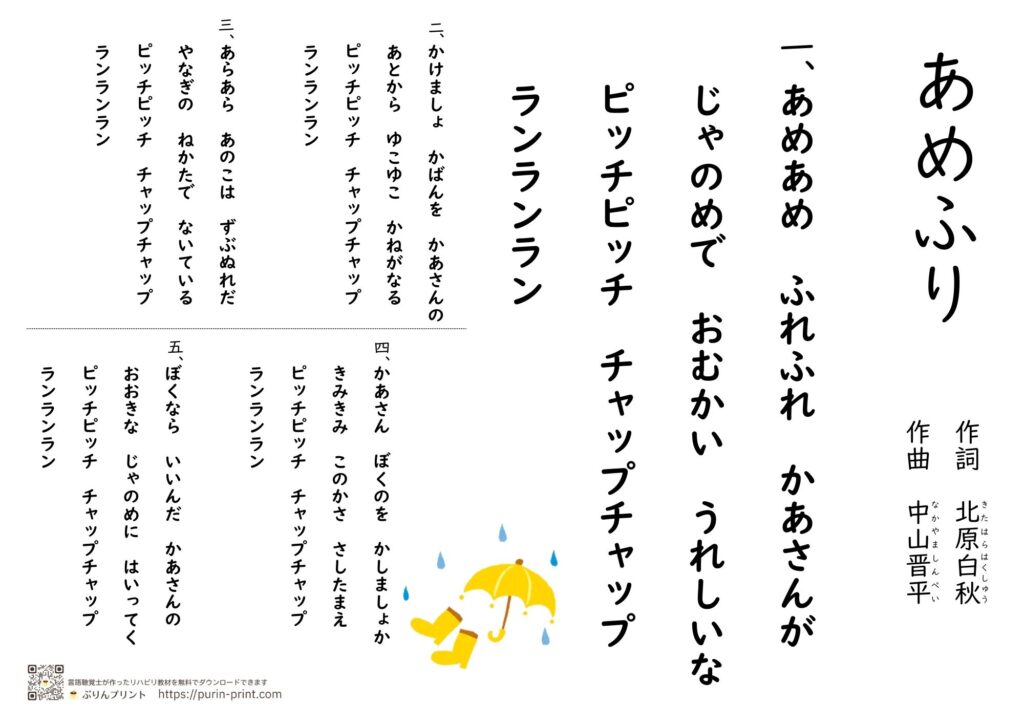 あめふり
作詞 北原白秋
きたはらはくしゅう
作曲 中山晋平
なかやましんぺい
一、あめあめ ふれふれ かあさんが
じゃのめで おむかい うれしいな
ピッチピッチ チャップチャップ
ランランラン
二、かけましょ かばんを かあさんの
あとから ゆこゆこ かねがなる
ピッチピッチ チャップチャップ
ランランラン
三、あらあら あのこは ずぶぬれだ
やなぎの ねかたで ないている
ピッチピッチ チャップチャップ
ランランラン
四、かあさん ぼくのを かしましょか
きみきみ このかさ さしたまえ
ピッチピッチ チャップチャップ
ランランラン
五、ぼくなら いいんだ かあさんの
おおきな じゃのめに はいってく
ピッチピッチ チャップチャップ
ランランラン
言語聴覚士が作ったリハビリ教材を無料でダウンロードできます
ぷりんプリント https://purin-print.com